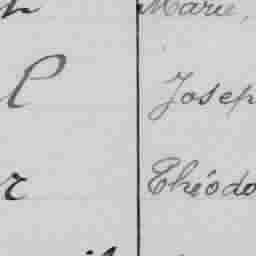 Marie,
l Josep
r Théodo